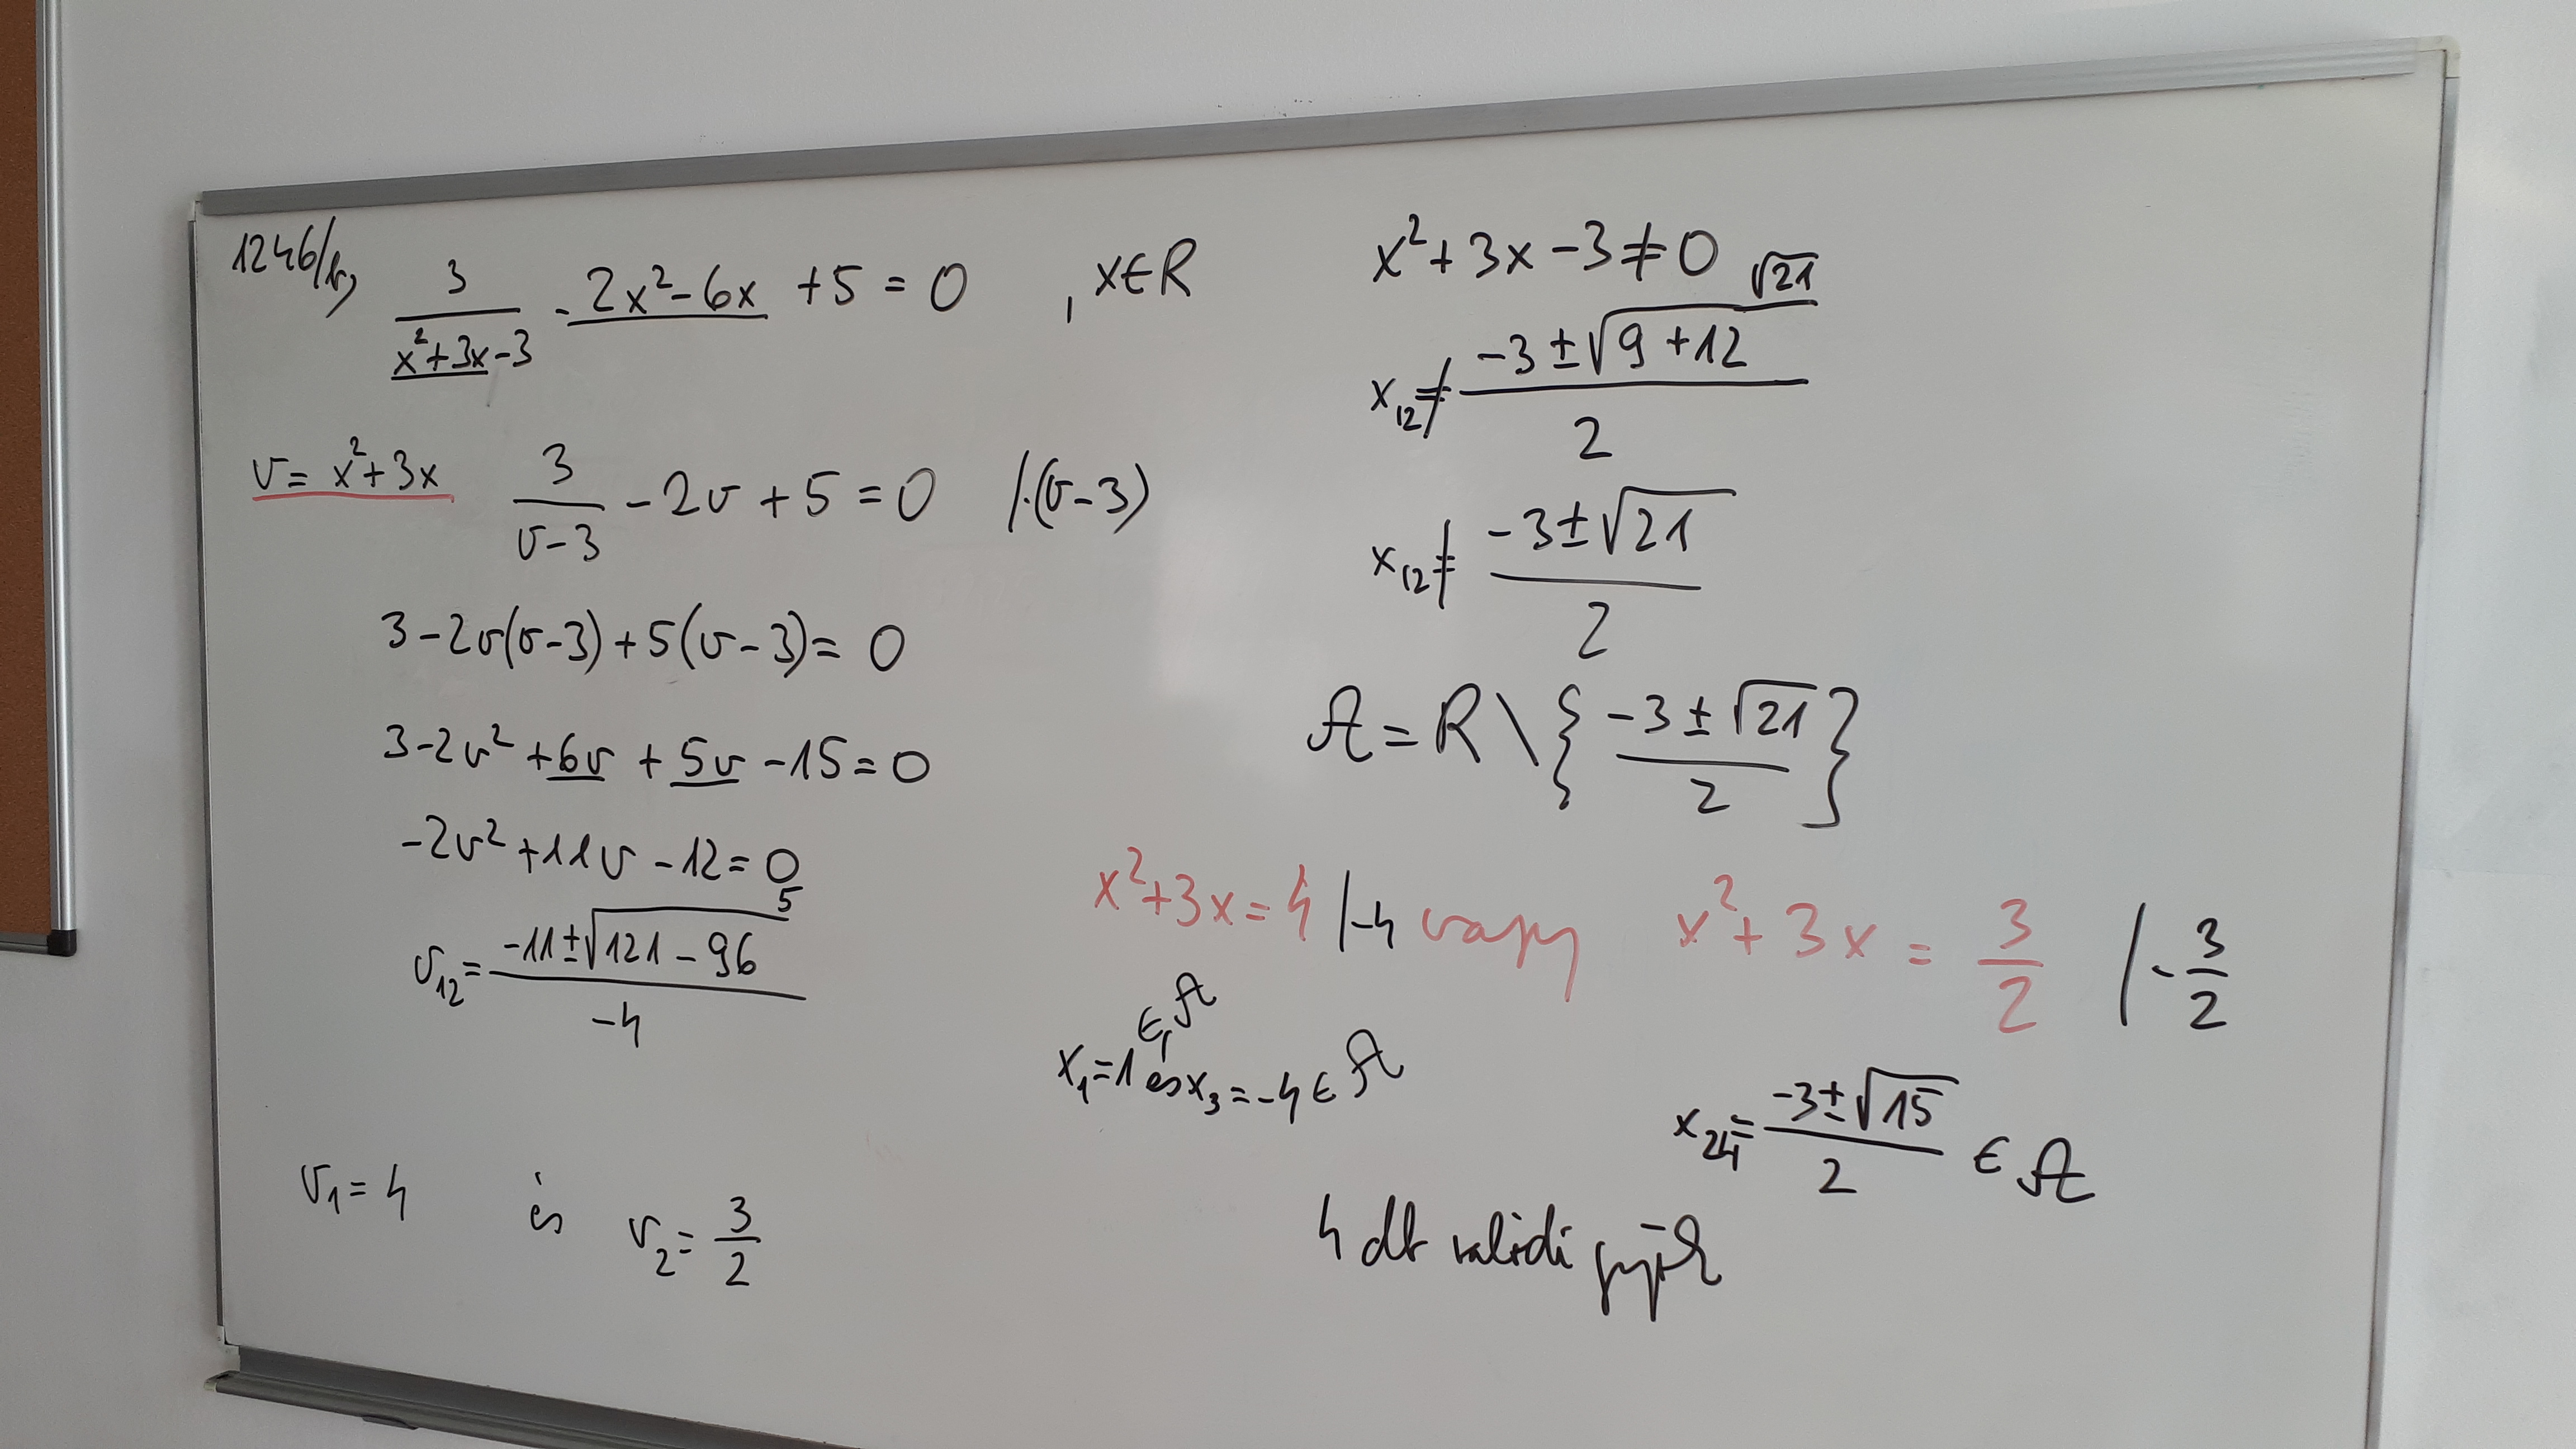 1246/b,
3/(x²+3x-3) - 2x²-6x +5 = 0 , x∈R
v = x²+3x 3/(v-3) - 2v + 5 = 0 /·(v-3)
3-2v(v-3)+5(v-3)= 0
3-2v² +6v + 5v -15 = 0
-2v² +11v -12 = 0
5
v₁₂ = (-11±√(121-96))/(-4)
v₁ = 4 és v₂ = 3/2
x²+3x-3≠0
√21
x₁₂ ≠ (-3±√(9+12))/2
x₁₂ ≠ (-3±√21)/2
A = R \ { (-3±√21)/2 }
x²+3x = 4 /-4 vagy x²+3x = 3/2 /-3/2
∈A
x₁=1 és x₃=-4 ∈ A
x₂₄ = (-3±√15)/2 ∈ A
4 db valódi gyök